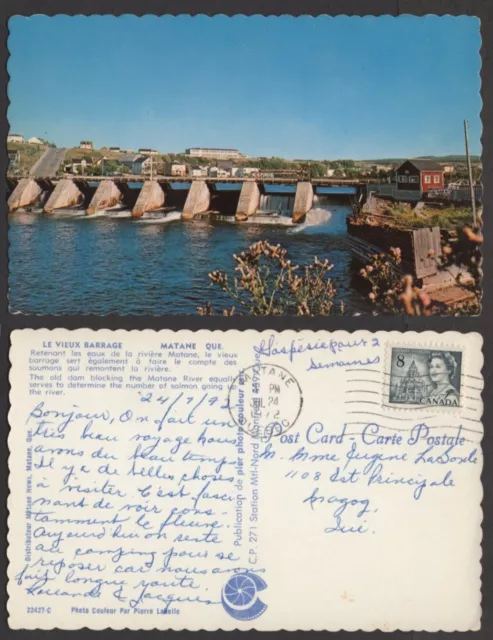 LE VIEUX BARRAGE MATANE QUE.
Retenant les eaux de la rivière Matane, le vieux
barrage sert également à faire le compte des
saumons qui remontent la rivière.
The old dam blocking the Matane River equally
serves to determine the number of salmon going up
the river.
24/7/92
Bonjour, On fait un
très beau voyage nous
avons du beau temps
Il y a de belles choses
à visiter. C'est fasci
nant de voir cons
tamment le fleuve.
Aujourd'hui on reste
au camping pour se
reposer car nous avons
fait longue route.
& Jacques
22427-C Photo Couleur Par Pierre Labelle
Distributeur Matane News, Matane, Que.
Publication de pier photo couleur enr.
C.P. 271 Station Mtl-Nord Montréal 459
Gaspésie pour 2
semaines
MATANE
PM
JUL 24
QUEBEC
8
CANADA
Post Card - Carte Postale
M. Mme Eugène LaSonde
1108 St Principale
Magog,
Qué.